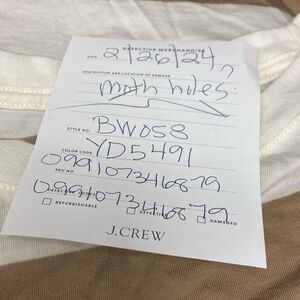 DEFECTIVE MERCHANDISE
DATE 2/26/24
DESCRIPTION AND LOCATION OF DAMAGE
moth holes
STYLE NO. BW058
COLOR CODE YD5491
SKU NO. 099107346879
099107346879
REFURBISHABLE DEFECTIVE DAMAGED
J.CREW